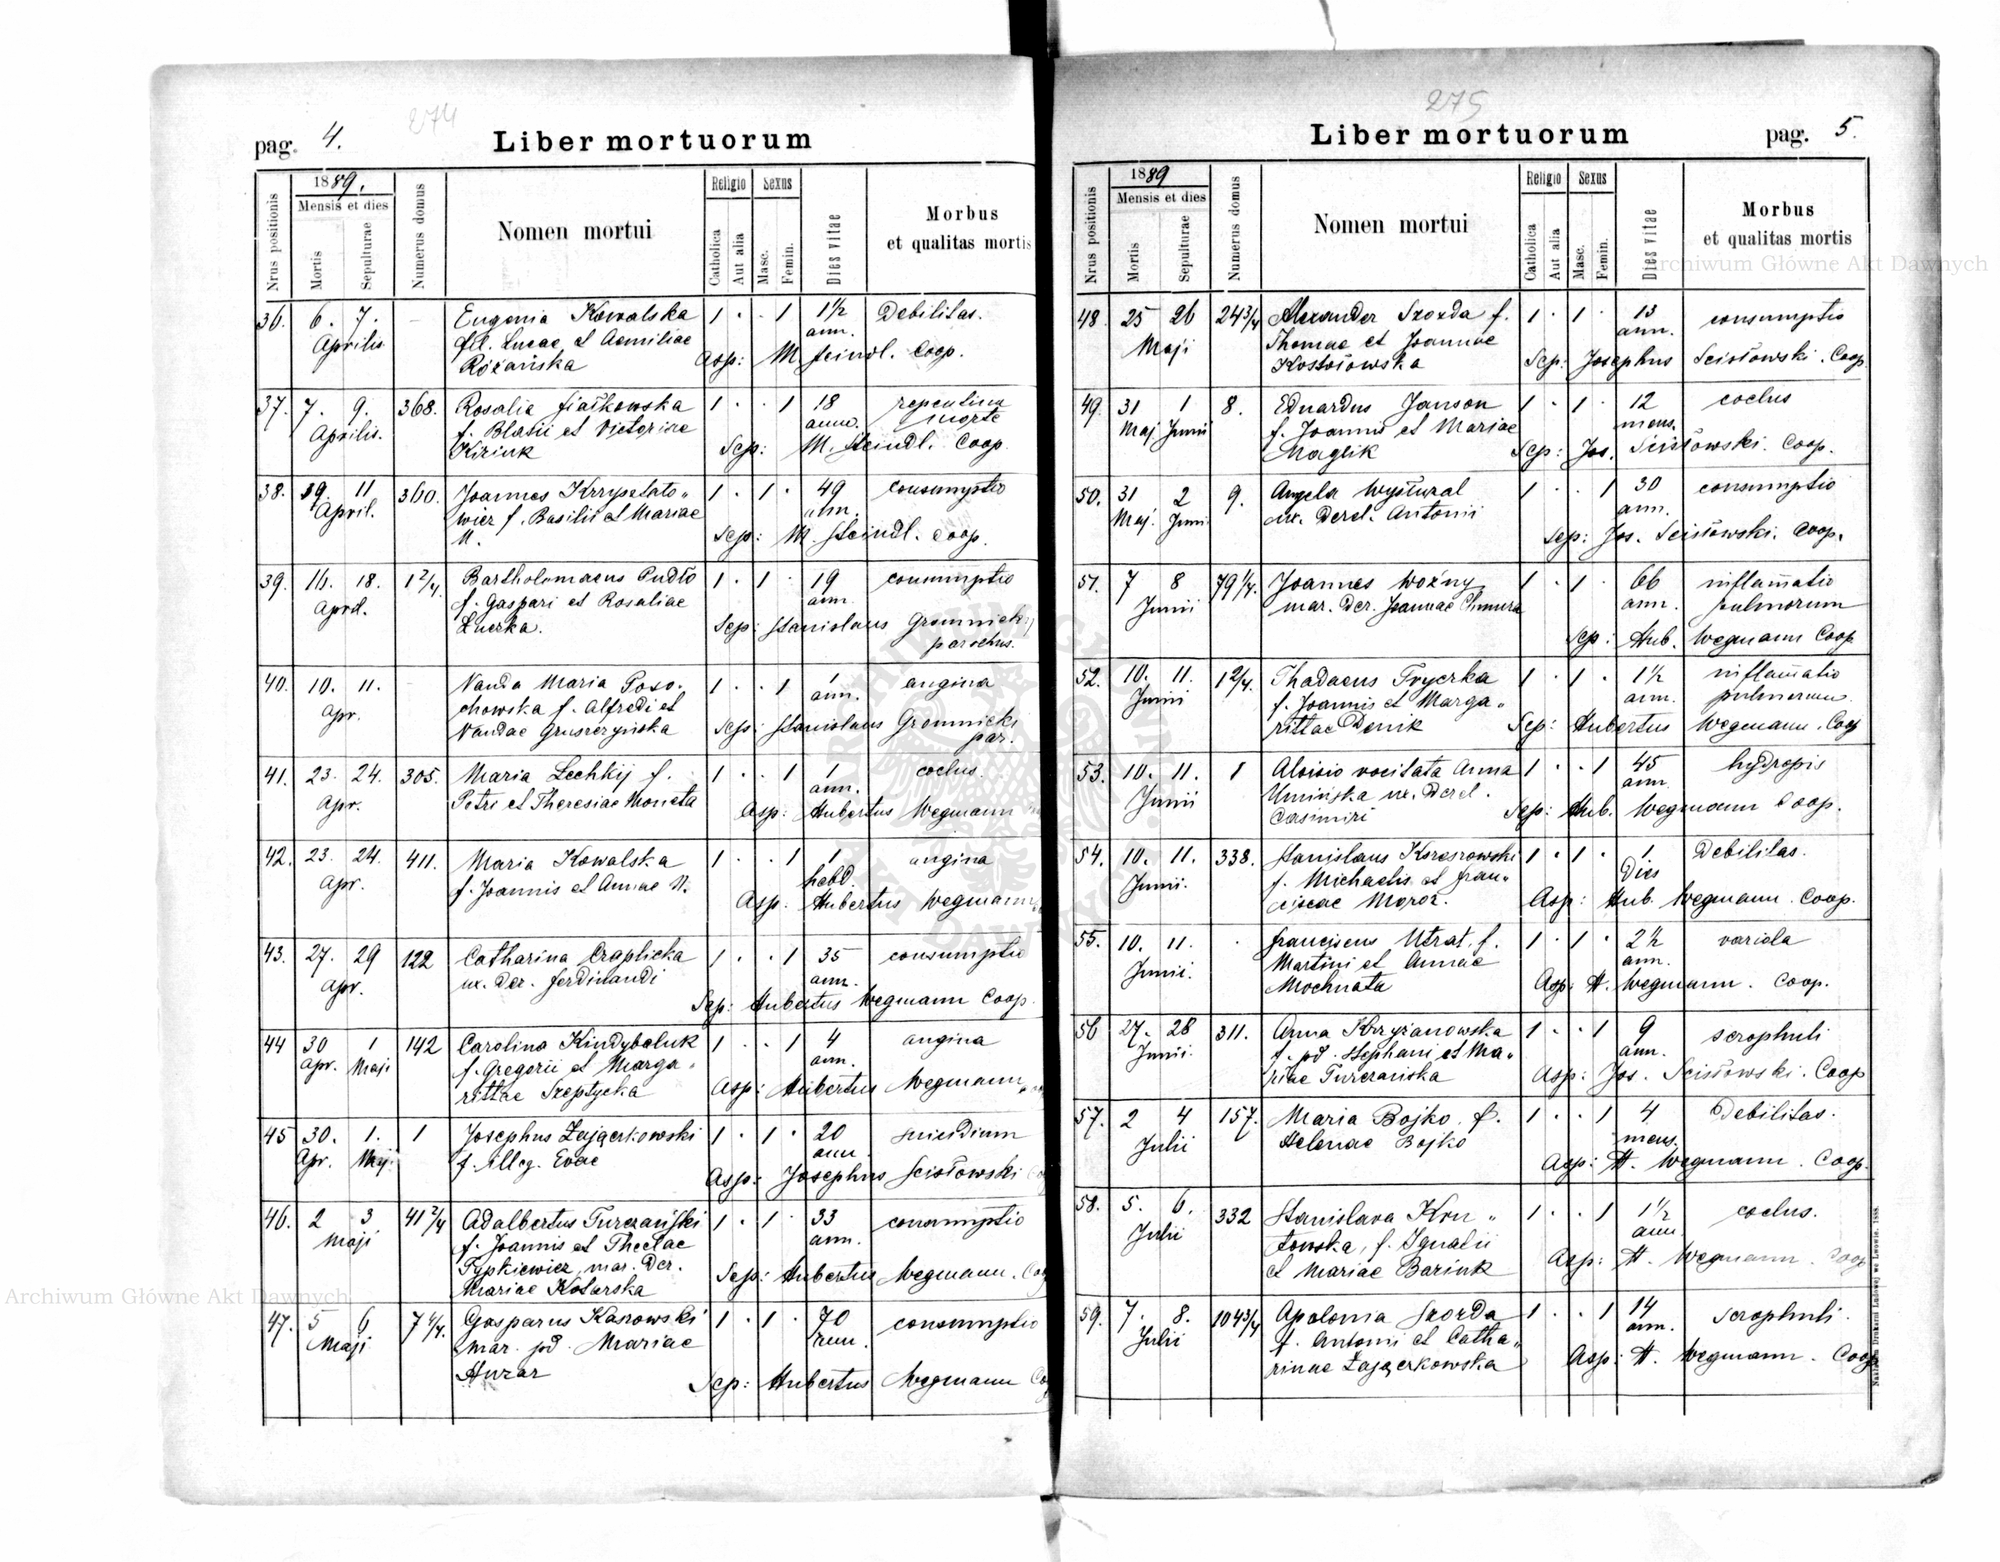 274
pag. 4.
Liber mortuorum
Nrus positionis
1889.
Mensis et dies
Mortis
Sepulturae
Numerus domus
Nomen mortui
Religio
Catholica
Aut alia
Sexus
Masc.
Femin.
Dies vitae
Morbus
et qualitas mortis
36. 6. 7. — Eugenia Kowalska 1 . . 1 1½ Debilitas.
Aprilis fil. Lucae et Aemiliae ann.
Różańska Asp: M. Steindl. Coop.
37. 7. 9. 368. Rosalia Fiałkowska 1 . . 1 18 repentina
Aprilis. f. Blasii et Victoriae ann. morte
Kirink Sep: M. Steindl. Coop
38. 9. 11 360. Joannes Krzysztato„ 1 . 1 . 49 consumptio
April. wicz f. Basilii et Mariae ann.
N. Sep: M. Steindl. Coop.
39. 16. 18. 12/4. Bartholomaeus Pudło 1 . 1 . 19 consumptio
April. f. Gaspari et Rosaliae ann.
Sep: Stanislaus Gromnicki
parochus.
40. 10. 11. Vanda Maria Poso- 1 . . 1 1 angina
Apr. chowska f. Alfredi et ann.
Vandae Gruszczyńska Sep: Stanislaus Gromnicki
par.
41. 23. 24. 305. Maria Lechkij f. 1 . . 1 1 coclus.
Apr. Petri et Theresiae Moneta ann.
Asp: Hubertus Wegmann
42. 23. 24. 411. Maria Kowalska 1 . . 1 1 angina
Apr. f. Joannis et Annae N. hebd.
Asp: Hubertus Wegmann
43. 27. 29 122 Catharina Czaplicka 1 . . 1 35 consumptio
Apr. ux. der. Ferdinandi ann.
Sep: Hubertus Wegmann Coop.
44 30 1 142 Carolina Kindybaluk 1 . . 1 4 angina
Apr. Maji f. Gregorii et Marga„ ann.
rittae Szeptycka Asp: Hubertus Wegmann
45 30. 1. 1 Josephus Zajączkowski 1 . 1 . 20 suicidium
Apr. Maji. f. illeg. Evae ann.
Asp: Josephus Scisłowski
46. 2 3 41 2/4 Adalbertus Turczański 1 . 1 . 33 consumptio
Maji f. Joannis et Theclae ann.
Typkiewicz, mar. Der. Sep: Hubertus Wegmann. Coop
Mariae Kotarska
47. 5 6 7 4/4. Gasparus Kasrowski 1 . 1 . 70 consumptio
Maji mar. pd. Mariae ann.
Huzar Sep: Hubertus Wegmann
275
Liber mortuorum
pag. 5.
Nrus positionis
1889
Mensis et dies
Mortis
Sepulturae
Numerus domus
Nomen mortui
Religio
Catholica
Aut alia
Sexus
Masc.
Femin.
Dies vitae
Morbus
et qualitas mortis
48. 25 26 243/4 Alexander Szozda f. 1 . 1 . 13 consumptio
Maji Thomae et Joannae ann.
Sep: Josephus Scisłowski. Coop
49. 31 1 8. Eduardus Janson 1 . 1 . 12 coclus
Maj Junii f. Joannis et Mariae mens.
Maglik Sep: Jos. Scisłowski. Coop.
50. 31 2 9. Angela Wystural 1 . . 1 30 consumptio
Maj. Junii ux. Derel. Antonii ann.
Sep: Jos. Scisłowski. Coop.
51. 7 8 79 1/4. Joannes Woźny 1 . 1 . 66 inflamatio
Junii mar. Der. Joannae Chmura ann. pulmorum
Sep: Hub. Wegmann Coop
52. 10. 11. 12/4. Thadaeus Tryczka 1 . 1 . 1½ inflamatio
Junii f. Joannis et Marga„ ann. pulmorum
rittae Denik Sep: Hubertus Wegmann. Coop
53. 10. 11. 1 Aloisio vocitata Anna 1 . . 1 45 hydropis
Junii Umińska ux. Derel. ann.
Casimiri Sep: Hub. Wegmann Coop.
54. 10. 11. 338. Stanislaus Korosrowski 1 . 1 . 1 Debilitas.
Junii. f. Michaelis et Fran„ Dies
ciscae Moroz. Asp: Hub. Wegmann. Coop.
55. 10. 11. . Franciscus Utrat. f. 1 . 1 . 2½ variola
Junii. Martini et Annae ann.
Mochnata Asp: H. Wegmann. Coop.
56 27. 28 311. Anna Krzyżanowska 1 . . 1 9 scrophuli
Junii. f. pd. Stephani et Ma„ ann.
riae Turczańska Asp: Jos. Scisłowski. Coop
57. 2 4 157. Maria Bojko. f. 1 . . 1 4 Debilitas.
Julii Helenae Bojko mens.
Asp: H. Wegmann. Coop.
58. 5. 6. 332 Stanislava Kru„ 1 . . 1 1½ coclus.
Julii towska, f. Ignatii ann.
et Mariae Barink Asp: H. Wegmann. Coop
59. 7. 8. 1043/4 Apolonia Szozda 1 . . 1 14 scrophuli.
Julii f. Antonii et Catha„ ann.
rinae Zajączkowska Asp: H. Wegmann. Coop
Archiwum Główne Akt Dawnych
Archiwum Główne Akt Dawnych